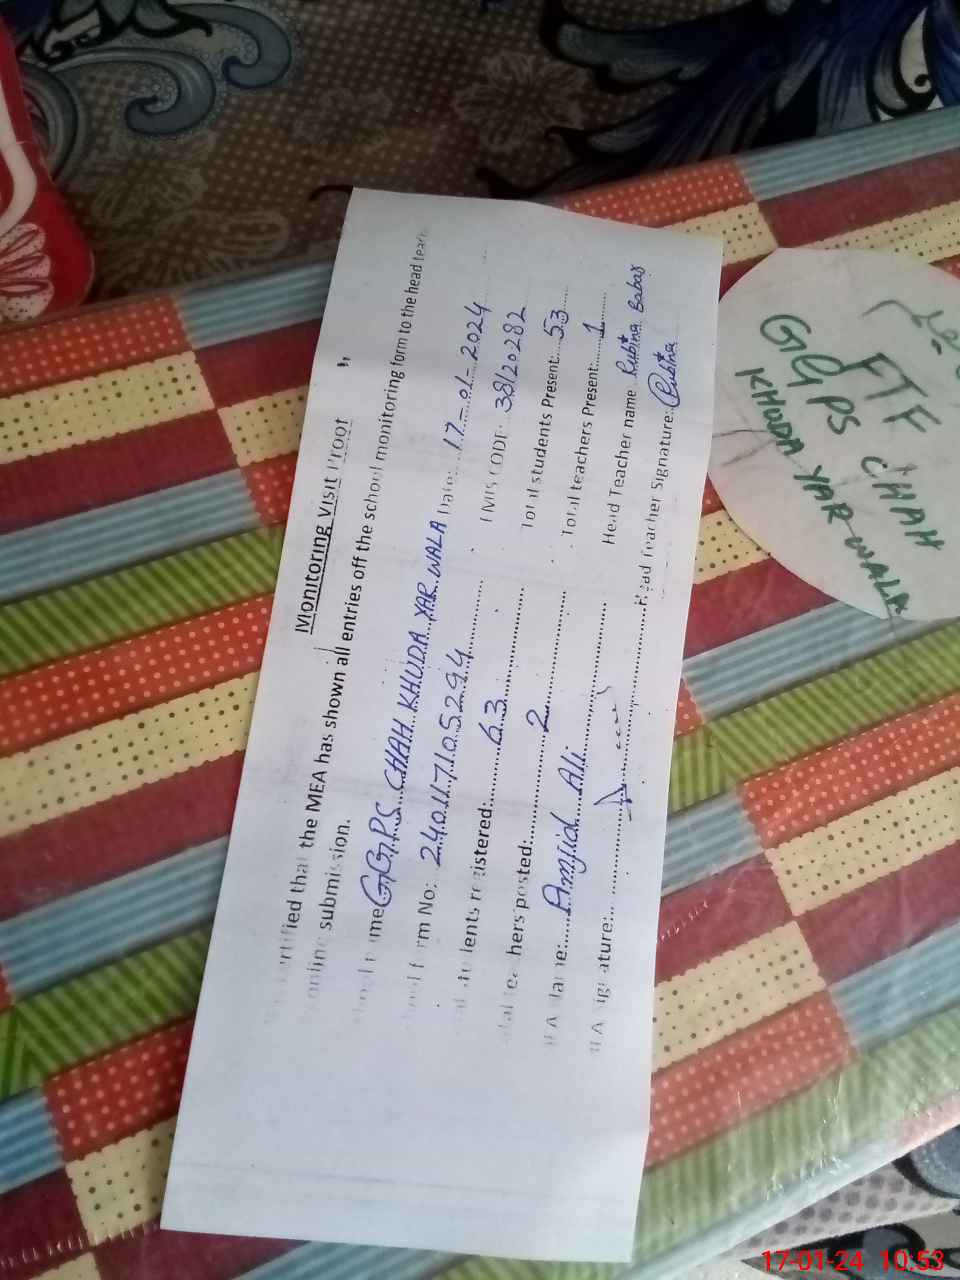 Monitoring Visit Proof
certified that the MEA has shown all entries off the school monitoring form to the head teach
online submission.
GGPS CHAH KHUDA YAR WALA Date: 17-01-2024
School form No: 240117105294 EMIS CODE: 38120282
students registered: 63 Total students Present: 53
teachers posted: 2 Total teachers Present: 1
MEA Name: Amjid Ali Head Teacher name Rubina Babar
MEA Signature: Head Teacher Signature: Rubina
FTF
GGPS CHAH
KHUDA YAR WALA
17-01-24 10:53